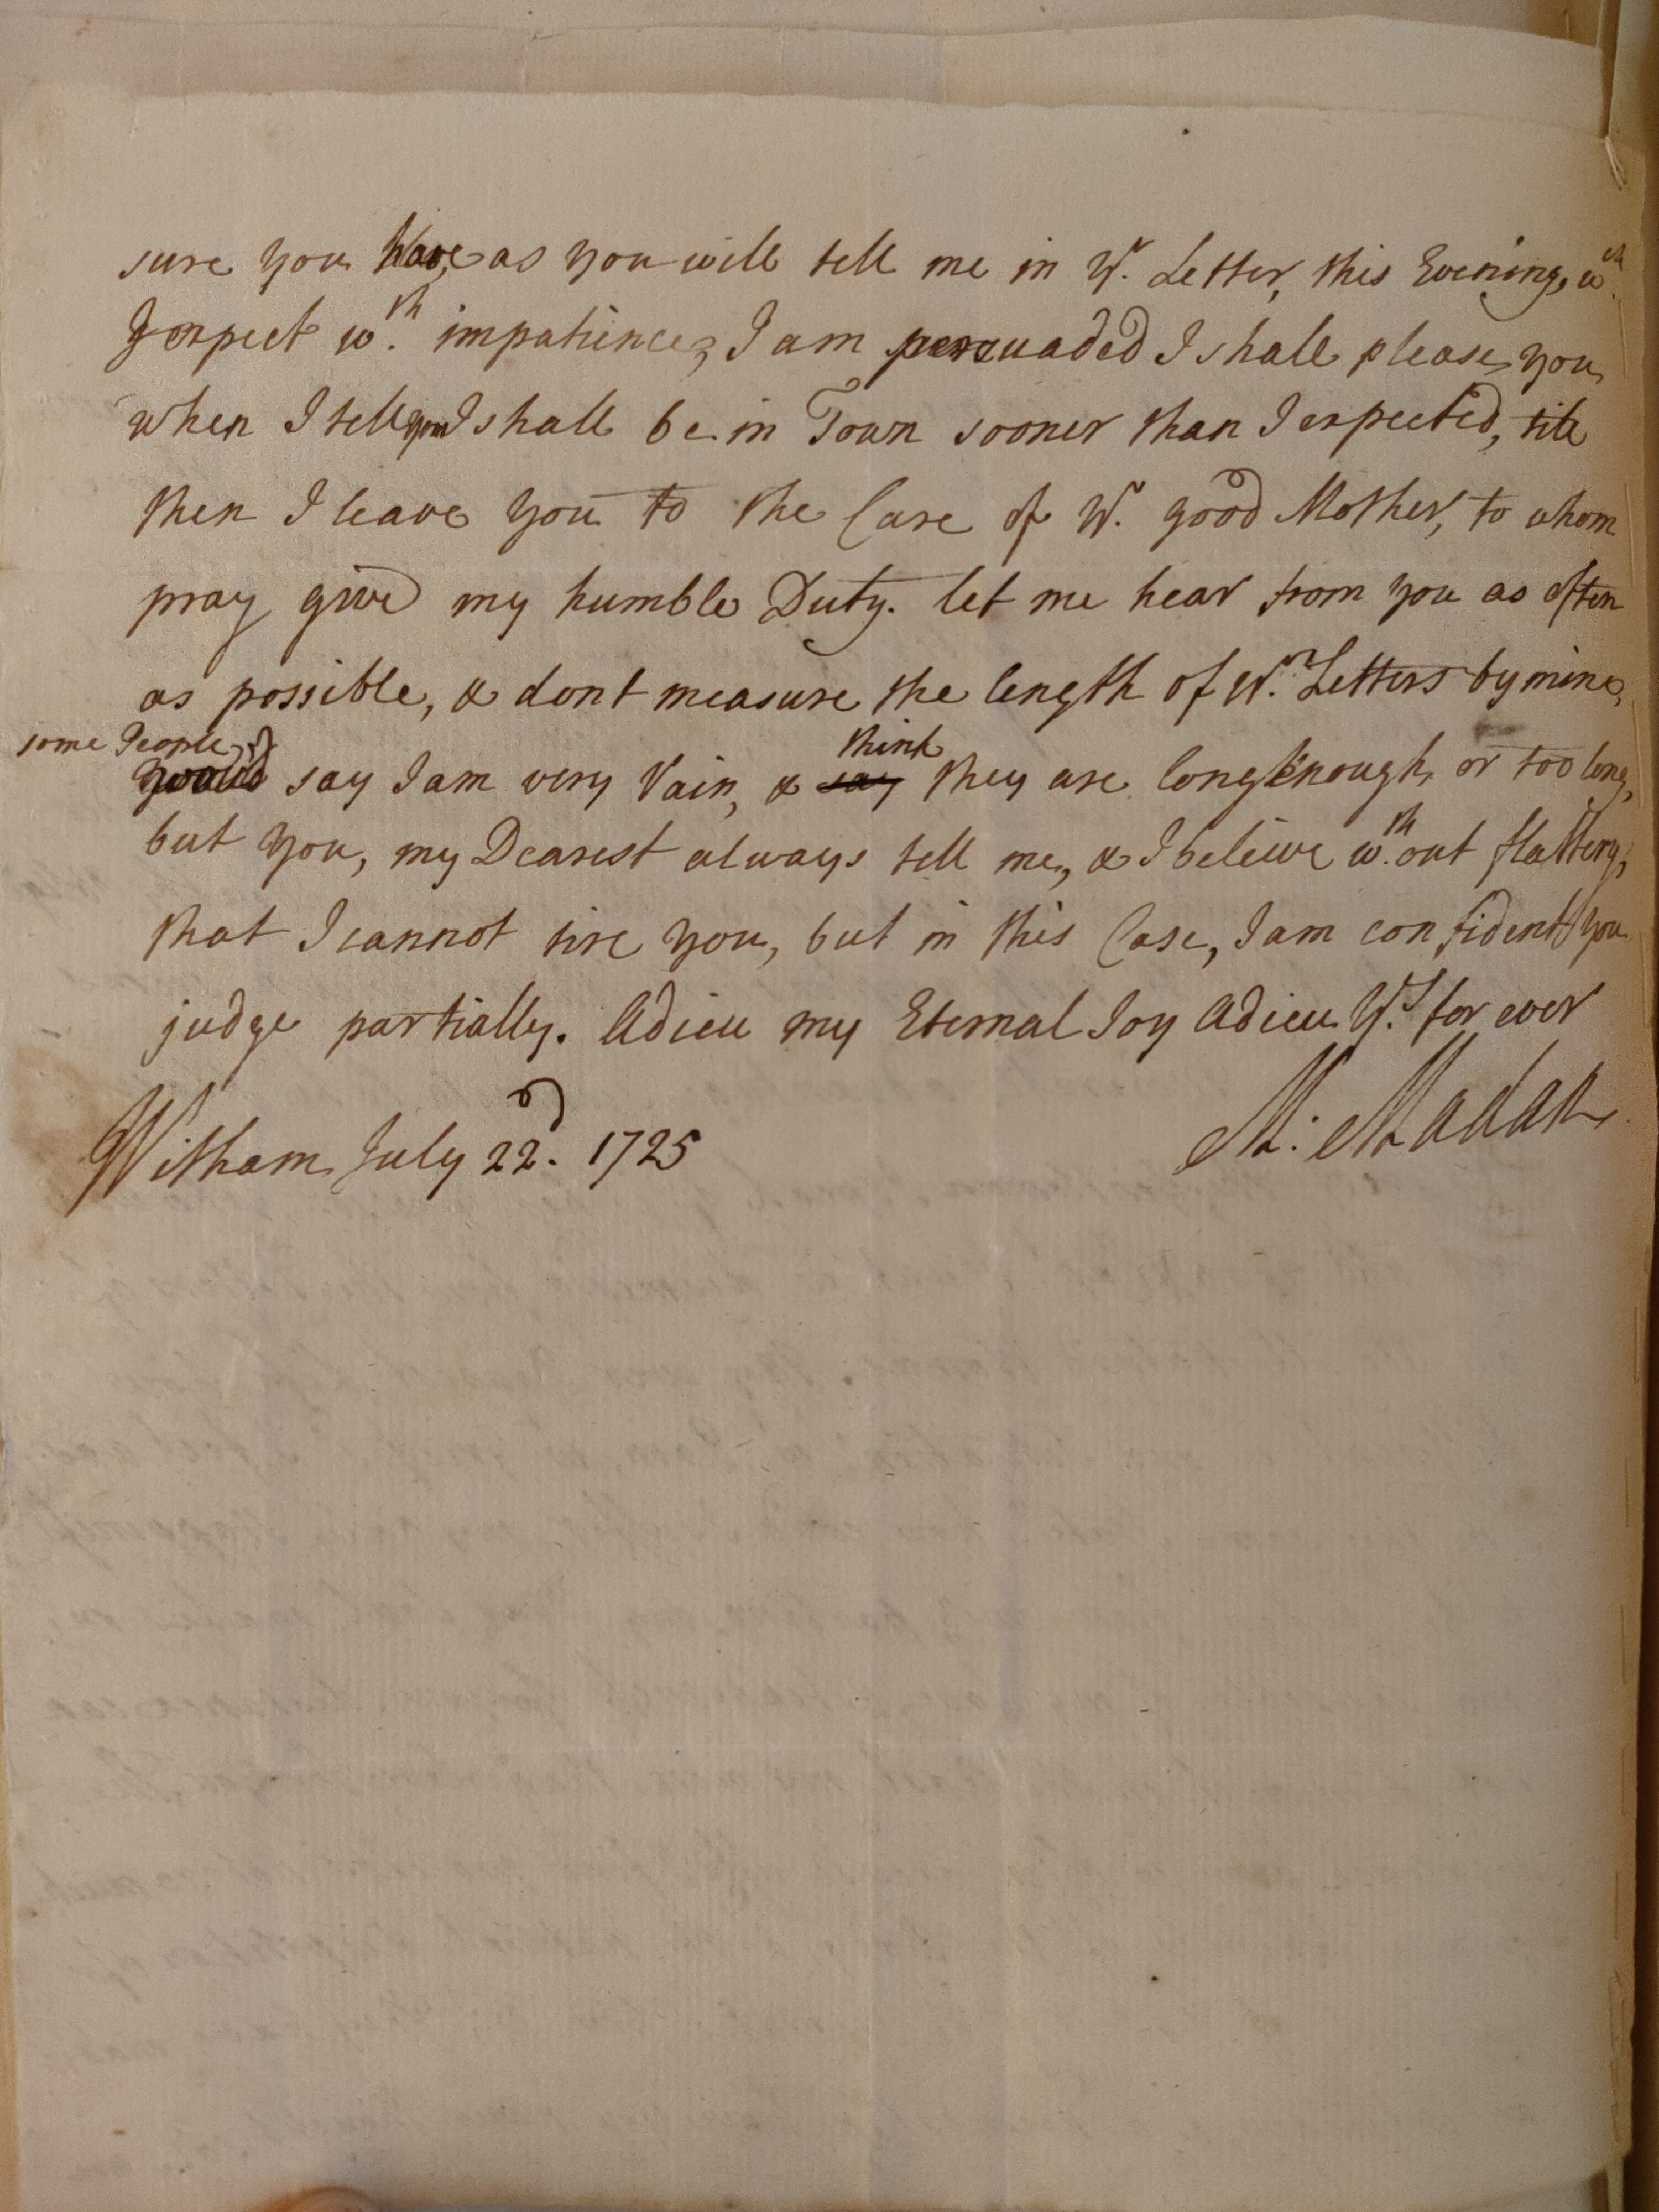 sure you have, as you will tell me in Yr. Letter, this Evening, wch.
I expect wth. impatience, I am perswaded I shall please you
when I tell you I shall be in Town sooner than I expected, till
then I leave you to the Care of Yr. good Mother, to whom
pray give my humble Duty. let me hear from you as often
as possible, & dont measure the length of Yr. Letters by mine,
some People wd
would say I am very Vain, & say think they are long Enough, or too long,
but you, my Dearest always tell me, & I beleive wth.out flattery,
that I cannot tire you, but in this Case, I am confident you
judge partially. Adieu my Eternal Joy Adieu Yrs. for ever
M: Madan
Witham July 22d. 1725